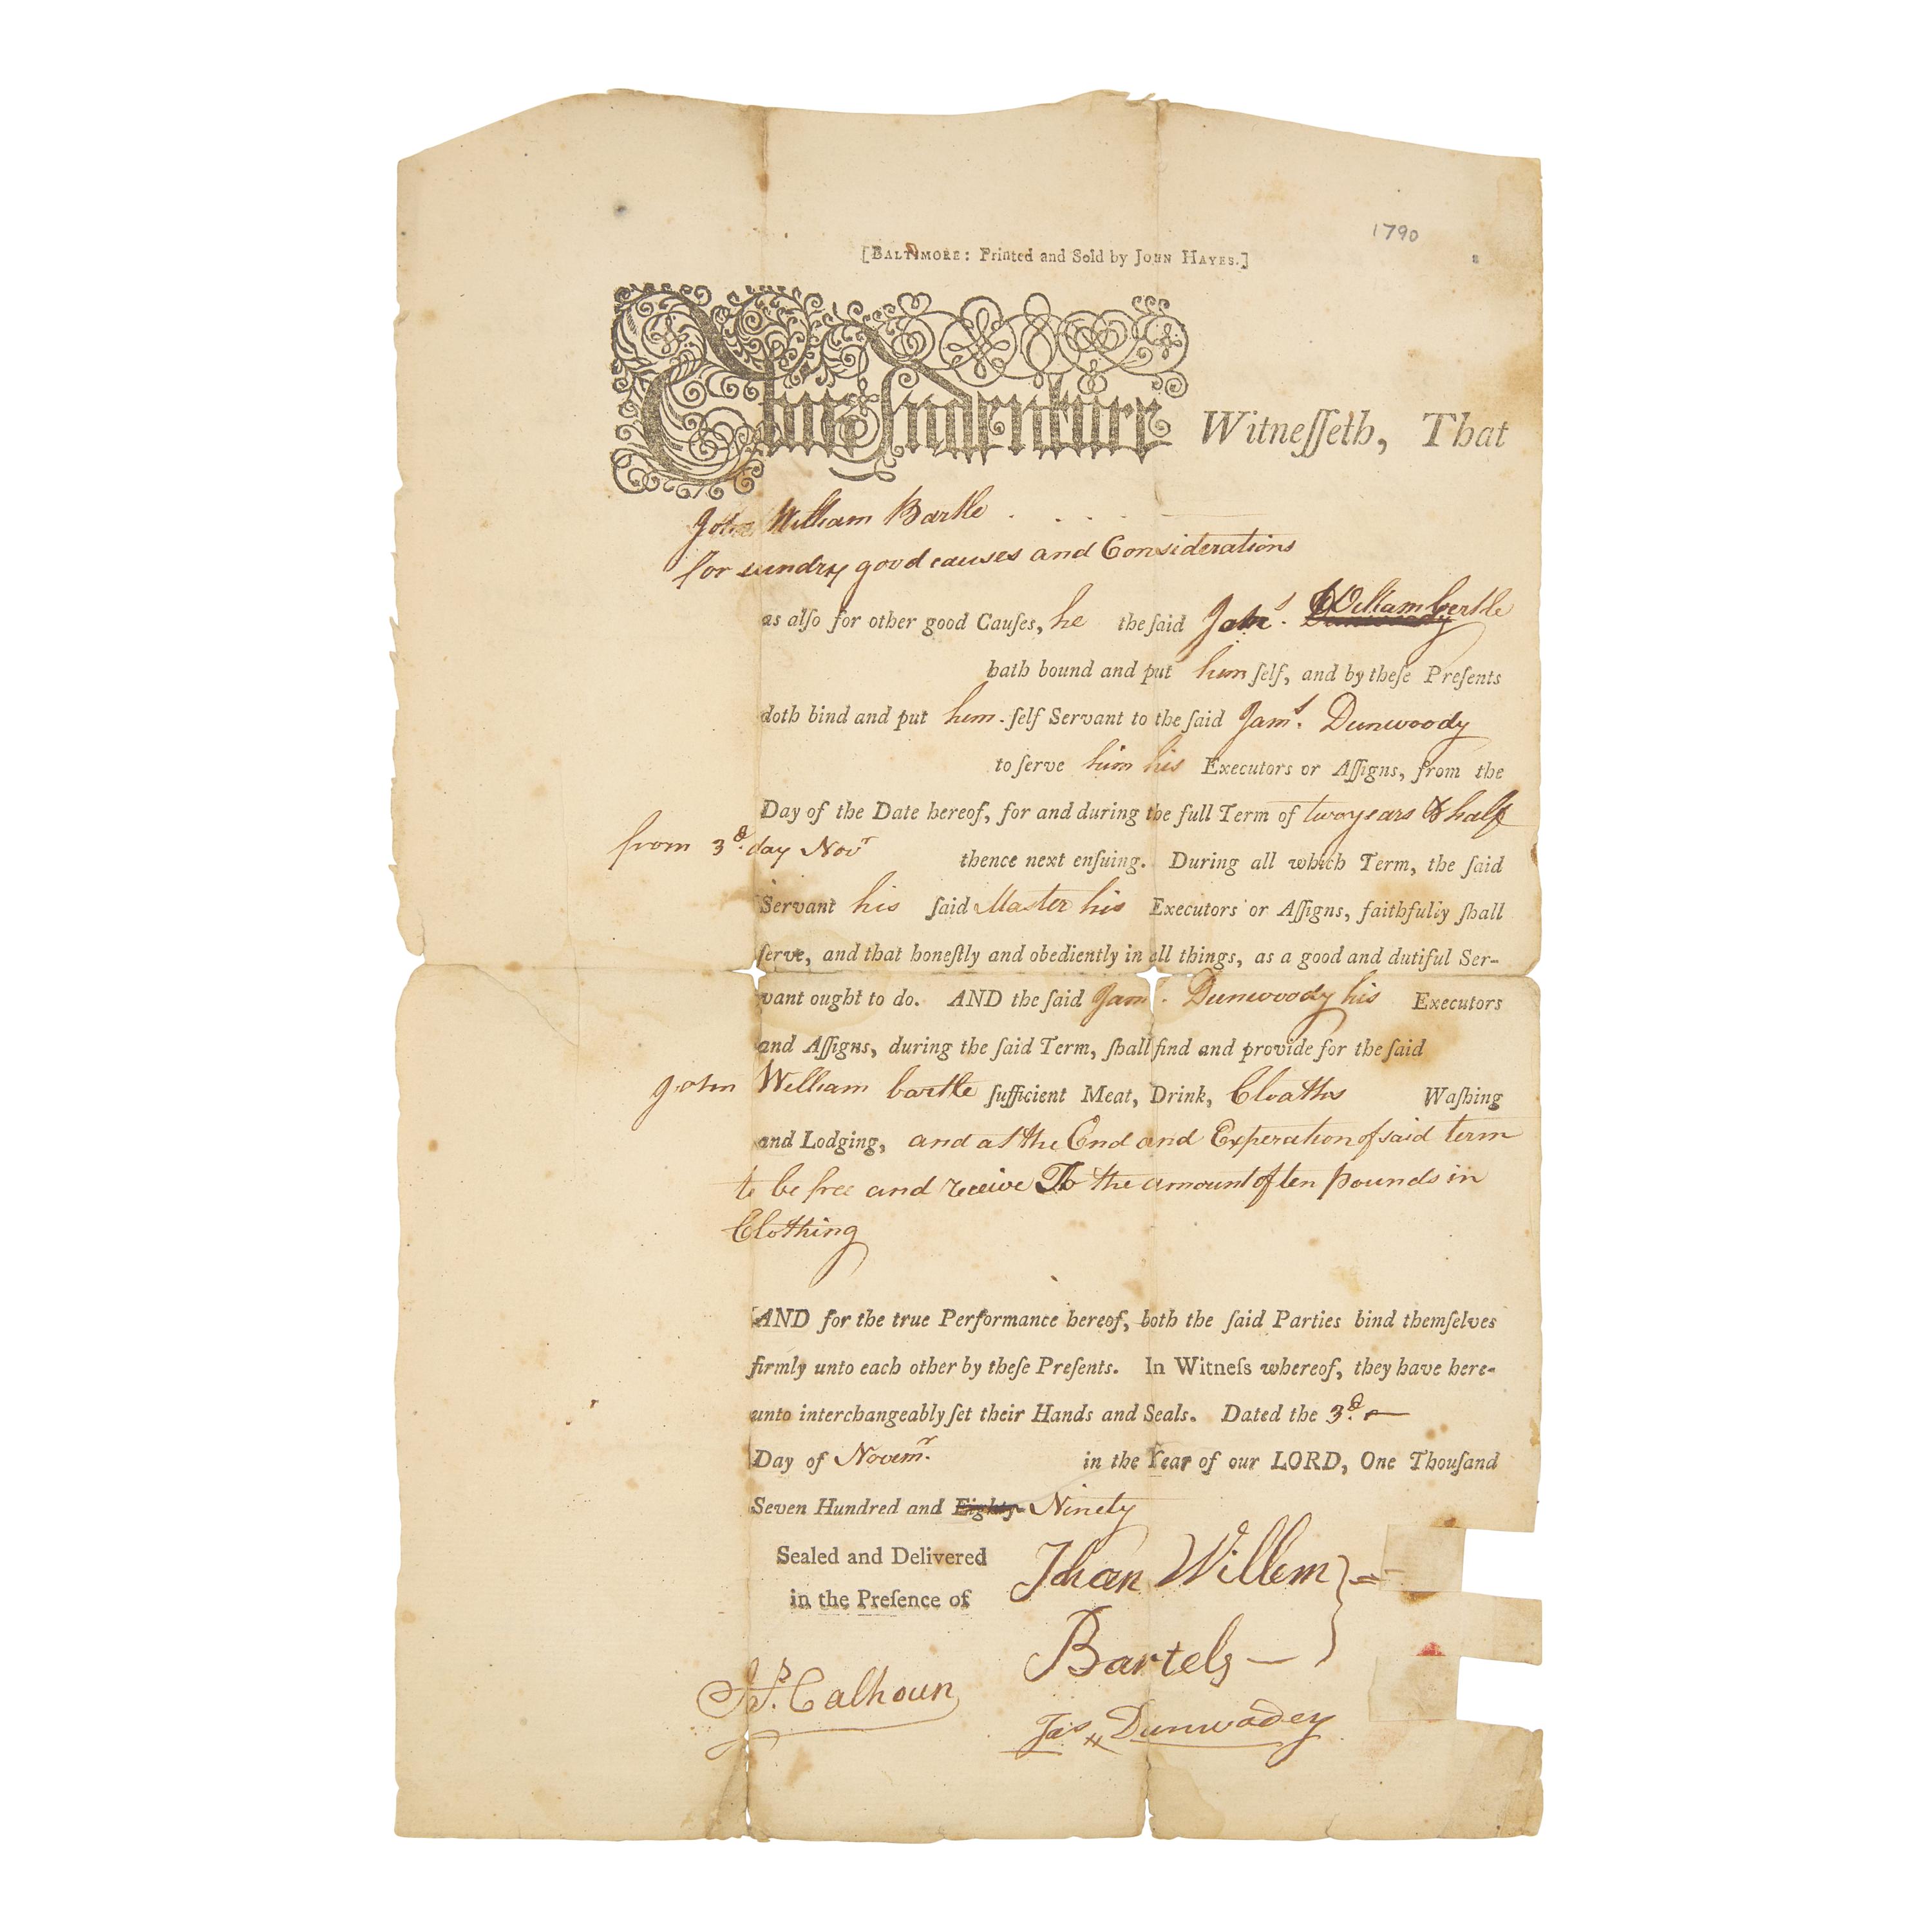 1790
[BALTIMORE: Printed and Sold by JOHN HAYES.]
This Indenture Witneſſeth, That
John William Bartle
for sundry good causes and Considerations
as alſo for other good Cauſes, he the ſaid Jams. William bertle
hath bound and put him ſelf, and by theſe Preſents
doth bind and put him ſelf Servant to the ſaid Jams. Dunwoody
to ſerve him his Executors or Aſſigns, from the
Day of the Date hereof, for and during the full Term of two years & half
from 3d. day Novr thence next enſuing. During all which Term, the ſaid
Servant his ſaid Master his Executors or Aſſigns, faithfully ſhall
ſerve, and that honeſtly and obediently in all things, as a good and dutiful Ser-
vant ought to do. AND the ſaid Jams. Dunwoody his Executors
and Aſſigns, during the ſaid Term, ſhall find and provide for the ſaid
John William bartle ſufficient Meat, Drink, Cloaths Waſhing
and Lodging, and at the End and Experation of said term
to be free and receive To the amount of ten pounds in
Clothing
AND for the true Performance hereof, both the ſaid Parties bind themſelves
firmly unto each other by theſe Preſents. In Witneſs whereof, they have here-
unto interchangeably ſet their Hands and Seals. Dated the 3d.
Day of Novemr. in the Year of our LORD, One Thouſand
Seven Hundred and Eighty- Ninety
Sealed and Delivered
in the Preſence of
Johan Willem
Bartels
Js. Calhoun
Jas Dunwodey